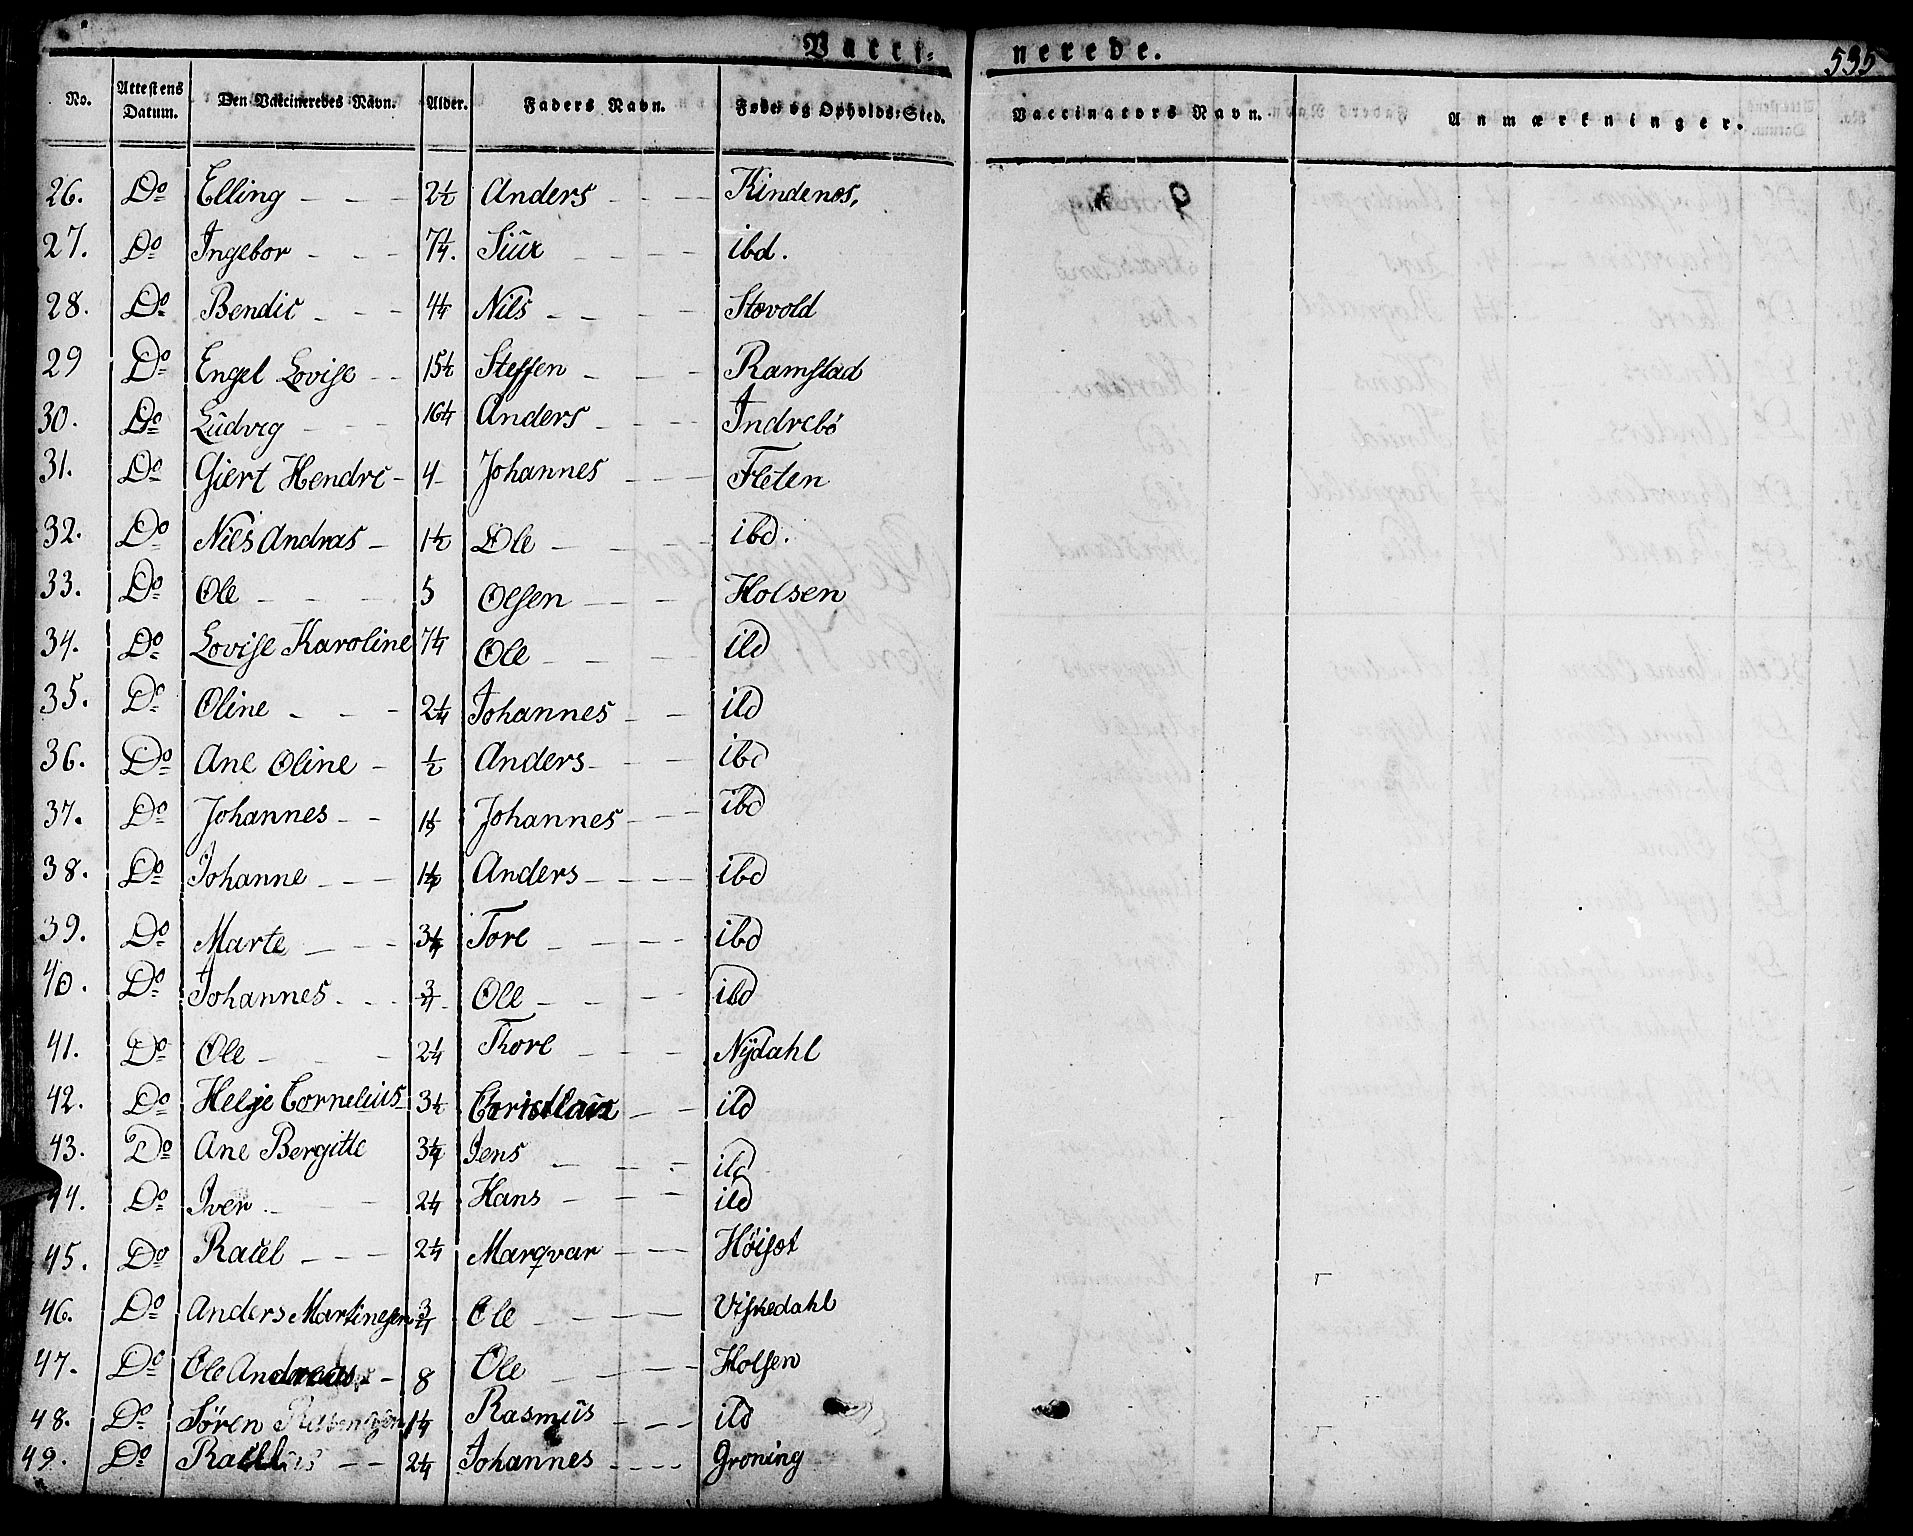 Vacci- nerede. 595
No. Attestens Datum. Den Vakcineredes Navn. Alder. Faders Navn. Føde og Opholds-Sted. Vaccinators Navn. Anmærkninger.
26. Do Elling - - - 2½ Anders - - - Kindenos,
27. Do Ingebor - - - 7¼. Siur - - - ibd.
28. Do Bendic - - - 4¼ Nils - - - Stovold
29 Do Engel Lovise - - 15½ Steffen - - - Ramstad
30. Do Ludvig - - - 16¼ Anders - - - Indrebö
31. Do Giert Hendrc - 4 Johannes - - - Fleten
32. Do Nils Andras - 1½ Ole - - - ibd.
33. Do Ole - - - 5 Olsen - - - Holsen
34. Do Lovise Karoline 7¼ Ole - - - ild
35. Do Oline - - - 2¼ Johannes - - ild
36. Do Ane Oline - ½ Anders - - - ibd
37. Do Johannes - - Johannes - - - ibd
38. Do Johanne - - - Anders - - - - ibd
39. Do Marte - - - 3¼ Tore - - - - ibd
40. Do Johannes - - - ¾ Ole - - - - ibd
41. Do Ole - - - 2¼ Thore - - - Nÿdahl
42. Do Helje Cornelius 3½ - - ild
43. Do Ane Bergitte 3¼ Jens - - - ild
44. Do Iver - - 2¼ Hans - - - ild
45. Do Racel - - - 2¼ Marqvar - - - Höiset
46. Do Anders Martinesen ¾ Ole - - - - Viskedahl
47. Do Ole Andreas - 8 Ole - - - - Holsen
48. Do Sören 1¼ Rasmus - - - ild
49. Do - - 2¼ Johannes - - - - Groning